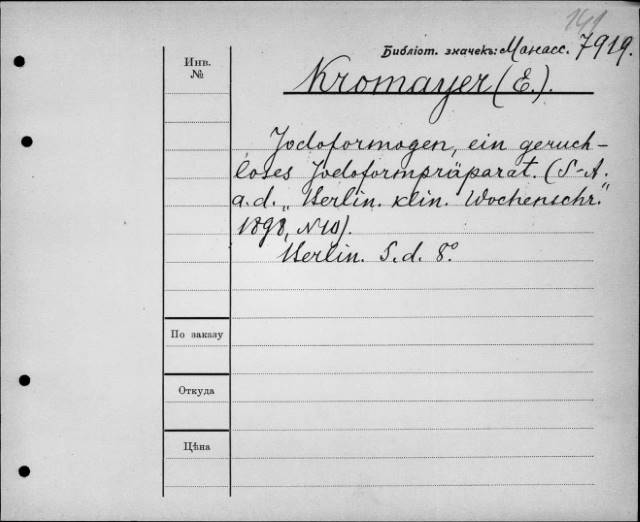 141
Библіот. значекъ: Манасс. 7919.
Инв. №
Kromayer (E.).
Jodoformogen, ein geruch-
loses Jodoformpräparat. (S-A.
a. d. „Berlin. klin. Wochenschr."
1898, N10).
Berlin. S. d. 8°
По заказу
Откуда
Цѣна